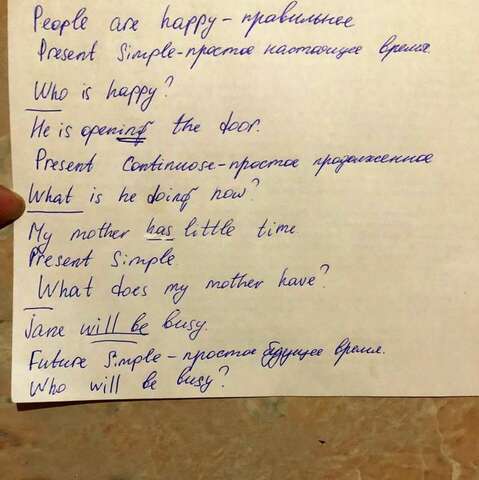 People are happy - правильнее
Present Simple - простое настоящее время.
Who is happy?
He is opening the door.
Present Continuose - простое продолженное
What is he doing now?
My mother has little time.
Present Simple
What does my mother have?
Jane will be busy.
Future Simple - простое будущее время.
Who will be busy?